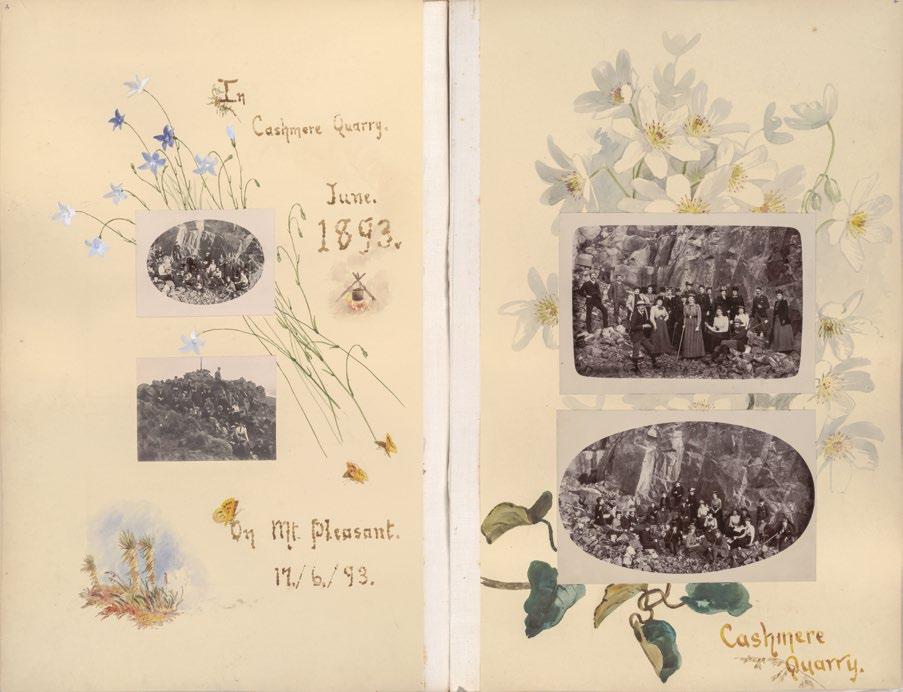 In
Cashmere Quarry.
June.
1893.
On Mt. Pleasant.
17./6./93.
Cashmere
Quarry.